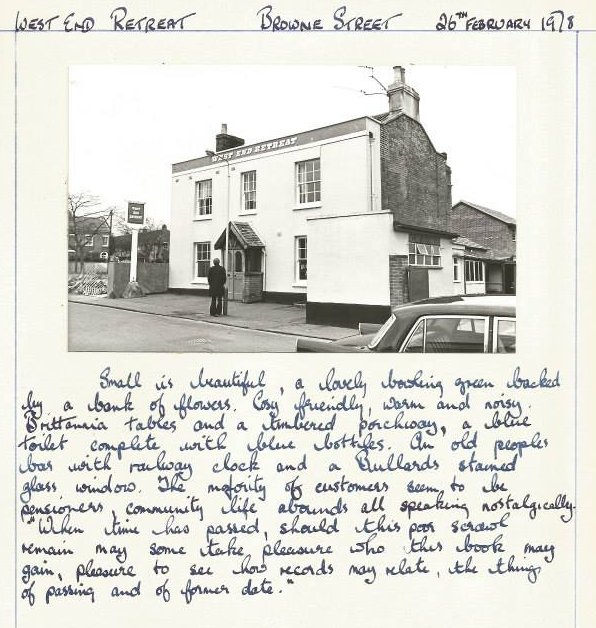 West End Retreat Browne Street 26TH February 1978
WEST END RETREAT
Small is beautiful, a lovely bowling green backed
by a bank of flowers. Cosy friendly, warm and noisy.
Brittannia tables and a timbered porchway, a blue
toilet complete with blue bottles. An old peoples
bar with railway clock and a Bullards stained
glass window. The majority of customers seem to be
pensioners, community life abounds all speaking nostalgically.
"When time has passed, should this poor scrawl
remain may some take, pleasure who this book may
gain, pleasure to see how records may relate, the things
of passing and of former date."